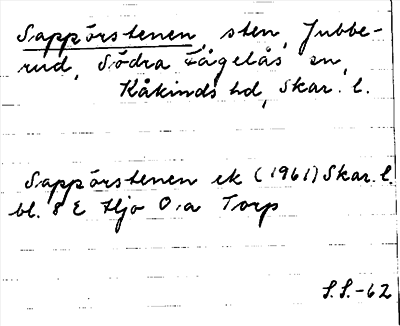 Sappörstenen, sten, Jubbe-
rud, Södra Fågelås sn,
Kåkinds hd, Skar. l.
Sappörstenen ek (1961) Skar. l.
bl. 8 E Hjo O.a Torp
S.S.-62